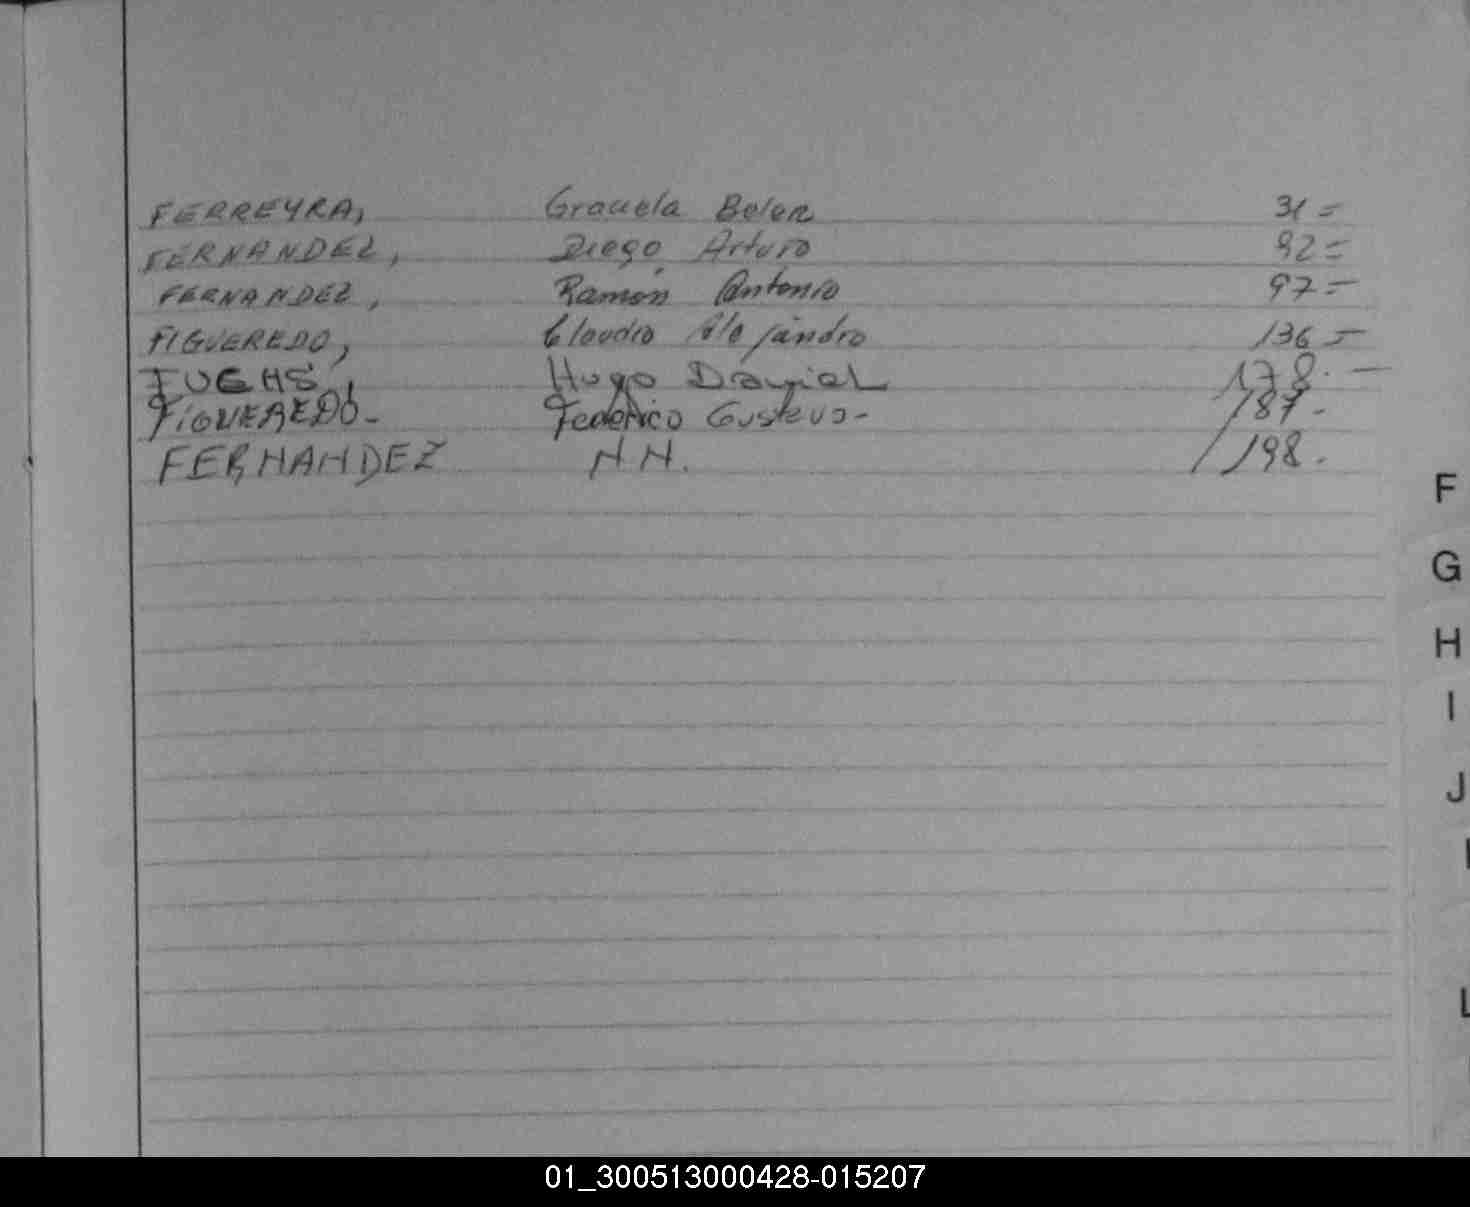 FERREYRA, Graciela Belen 31=
FERNANDEZ, Diego Arturo 92=
FERNANDEZ, Ramón Antonio 97=
FIGUEREDO, Claudio Alejandro 136=
FUCHS, Hugo Daniel 178.—
FIGUEREDO- Federico Gustavo- 187-
FERNANDEZ N.N. 198.
F
G
H
I
J
L
01_300513000428-015207